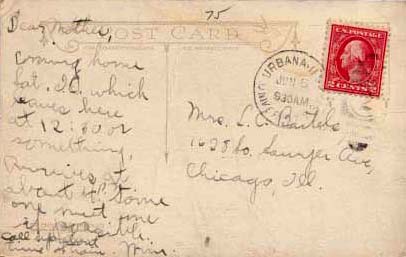 75
Dear Mother,
POST CARD
Coming home
Sat. I.C. which
leaves here
at 12:30 or
something,
Arrives at
about 4. Some
one meet me
if possible
call up about
time of train. Wm.
URBANA, ILL.
JUN 5
930AM
U.S. POSTAGE
2 CENTS 2
Mrs. L. C. Bartels
1628 So. Sawyer Ave,
Chicago, Ill.